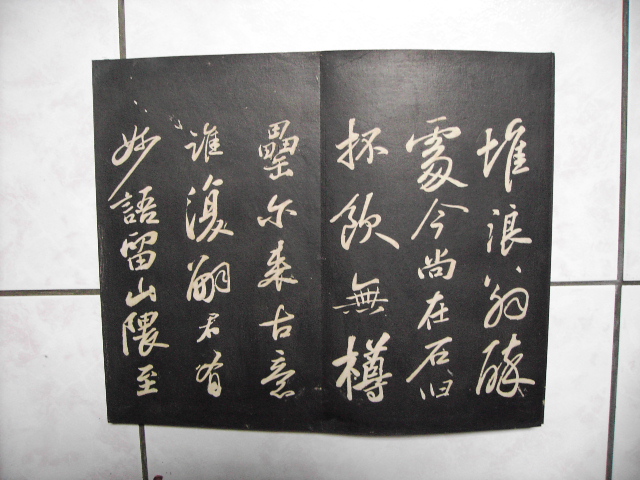 堆浪翁醉
處今尚在石臼
抔飲無樽
罍尔来古意
誰復嗣君有
妙語留山隈至